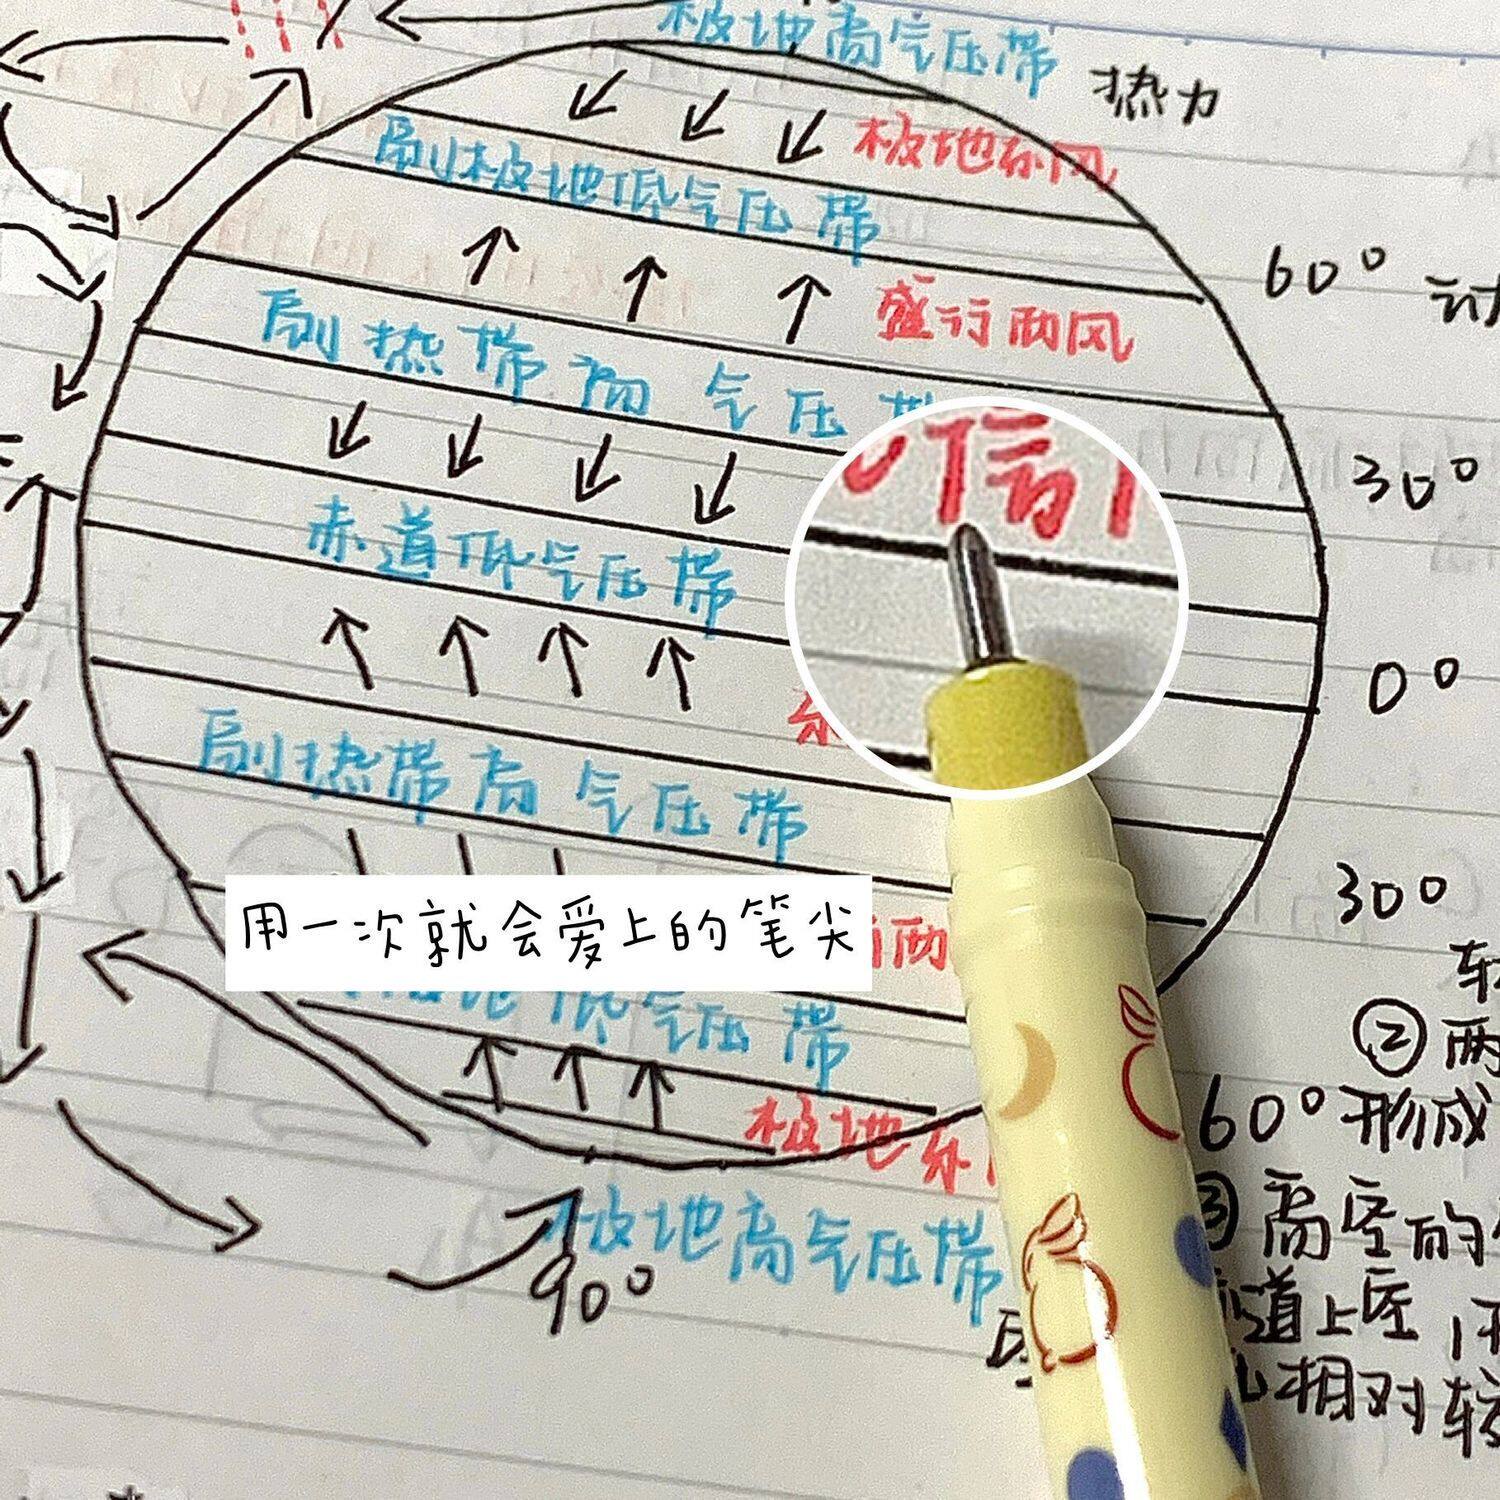 极地高气压带
热力
极地东风
副极地低气压带
60°
盛行西风
副热带高气压带
30°
信
赤道低气压带
0°
东
副热带高气压带
30°
用一次就会爱上的笔尖
西
②两
地低气压带
60°形成
极地东
③高空的
极地高气压带
90°
道上空
相对较